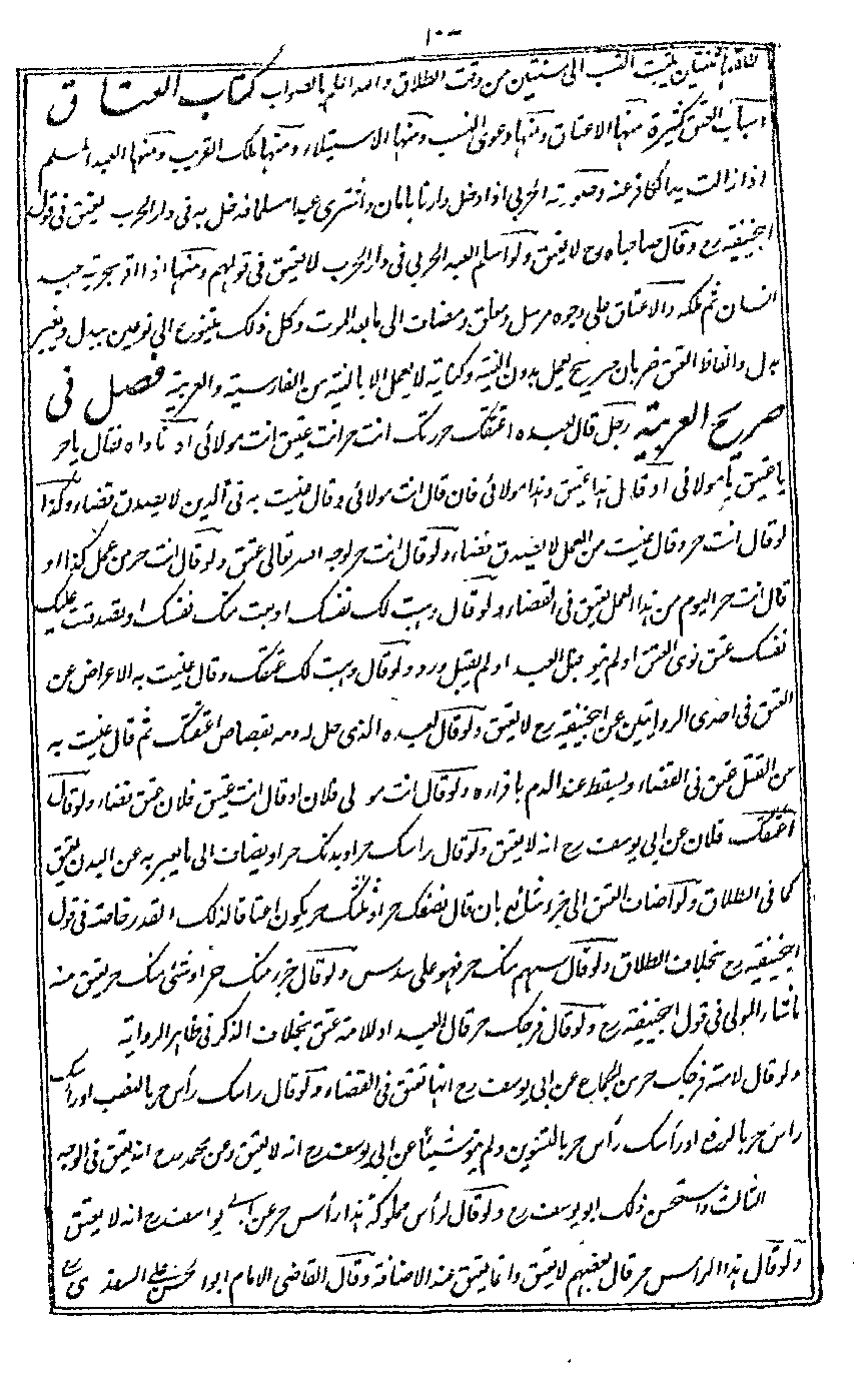 ١٠٠
يثبت النسب الى سنتين من وقت الطلاق والله اعلم بالصواب كتاب العتاق
اسباب العتق كثيرة منها الاعتاق ومنها دعوى النسب ومنها الاستيلاد ومنها ملك القريب ومنها العبد المسلم
اذا زالت يد الكافر عنه وصورته الحربي اذا دخل دارنا بامان واشترى عبدا مسلما فدخل به في دار الحرب يعتق في قول
ابيحنيفة رح وقال صاحباه رح لا يعتق ولو اسلم العبد الحربي في دار الحرب لا يعتق في قولهم ومنها اذا اقر بحرية عبد
انسان ثم ملكه والاعتاق على وجوه مرسل ومعلق ومضاف الى ما بعد الموت وكل ذلك يتنوع الى نوعين ببدل وبغير
بدل والفاظ العتق ضربان صريح يعمل بدون النية وكناية لا يعمل الا بالنية من الفارسية والعربية فصل في
صريح العربية رجل قال لعبده اعتقتك حررتك انت حر انت عتيق انت مولائي او ناداه فقال يا حر
يا عتيق يا مولائي او قال هذا عتيق وهذا مولائي فان قال انت مولائي وقال عنيت به في الدين لا يصدق قضاء وكذا
لو قال انت حر وقال عنيت من العمل لا يصدق قضاء ولو قال انت حر لوجه الله تعالى عتق ولو قال انت حر من عمل كذا او
قال انت حر اليوم من هذا العمل يعتق في القضاء ولو قال وهبت لك نفسك او بعت منك نفسك او تصدقت عليك
نفسك عتق نوى العتق او لم ينو قبل العبد او لم يقبل ورد ولو قال وهبت لك عتقك وقال عنيت به الاعراض عن
العتق في احدى الروايتين عن ابيحنيفة رح لا يعتق ولو قال لعبده الذي حل له دمه بقصاص اعتقتك ثم قال عنيت به
من القتل عتق في القضاء ويسقط عنه الدم باقراره ولو قال انت مولى فلان او قال انت عتيق فلان عتق قضاء ولو قال
اعتقك فلان عن ابي يوسف رح انه لا يعتق ولو قال راسك حر او بدنك حر او يضاف الى ما يعبر به عن البدن يعتق
كما في الطلاق ولو اضاف العتق الى جزء شائع بان قال نصفك حر او ثلثك حر يكون اعتاقا لذلك القدر خاصة في قول
ابيحنيفة رح بخلاف الطلاق ولو قال سهم منك حر فهو على سدس ولو قال جزء منك حر او شئ منك حر يعتق منه
ما شاء المولى في قول ابيحنيفة رح ولو قال فرجك حر قال للعبد او للامة عتق بخلاف الذكر في ظاهر الرواية
ولو قال لامته فرجك حر من الجماع عن ابي يوسف رح انها تعتق في القضاء ولو قال راسك رأس حر بالنصب او راسك
راس حر بالرفع او رأسك رأس حر بالتنوين ولم ينو شيئا عن ابي يوسف رح انه لا يعتق وعن محمد رح انه يعتق في الوجه
الثالث واستحسن ذلك ابو يوسف رح ولو قال لرأس مملوكه هذا رأس حر عن ابي يوسف رح انه لا يعتق
ولو قال هذا الرأس حر قال بعضهم لا يعتق وانما يعتق عند الاضافة وقال القاضي الامام ابو الحسن علي السغدي رح